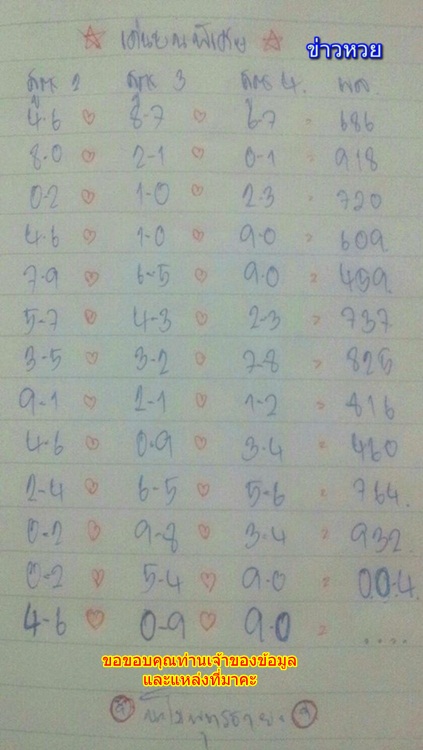 ☆ เด่นบนพิเศษ ☆
ข่าวหวย
สูตร 2 สูตร 3 สูตร 4. ผล
4-6 ♡ 8-7 ♡ 6-7 = 686
8-0 ♡ 2-1 ♡ 0-1 = 918
0-2 ♡ 1-0 ♡ 2-3 = 720
4-6 ♡ 1-0 ♡ 9-0 = 609
7-9 ♡ 6-5 ♡ 9-0 = 459
5-7 ♡ 4-3 ♡ 2-3 = 737
3-5 ♡ 3-2 ♡ 7-8 = 825
9-1 ♡ 2-1 ♡ 1-2 = 816
4-6 ♡ 0-9 ♡ 3-4 = 460
2-4 ♡ 6-5 ♡ 5-6 = 764.
0-2 ♡ 9-8 ♡ 3-4 = 932
0-2 ♡ 5-4 ♡ 9-0 = 004.
4-6 ♡ 0-9 ♡ 9-0 = ....
ขอขอบคุณท่านเจ้าของข้อมูล
และแหล่งที่มาคะ